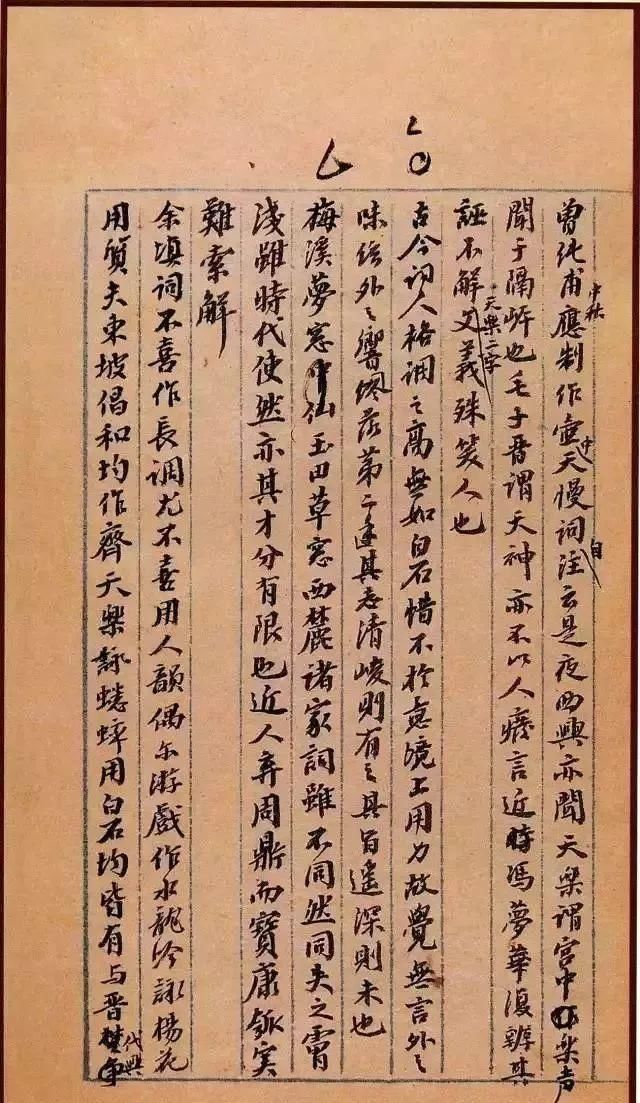 曾純甫中秋應制作壺中天慢詞自注云是夜西興亦聞天樂謂宮中樂声
聞于隔岍也毛子晉謂天神亦不以人癈言近時馮夢華復辨其
誣不解天樂二字文義殊笑人也
古今詞人格調之高無如白石惜不於意境上用力故覺無言外之
味絃外之響終落第二其志清峻則有之其旨遙深則未也
梅溪夢窓中仙玉田草窓西麓諸家詞雖不同然同失之膚
淺雖時代使然亦其才分有限也近人弃周鼎而寶康瓠実
難索解
余填詞不喜作長調尤不喜用人韻偶尔游戲作水龍吟詠楊花
用質夫東坡倡和均作齊天樂詠蟋蟀用白石均皆有与晋代興